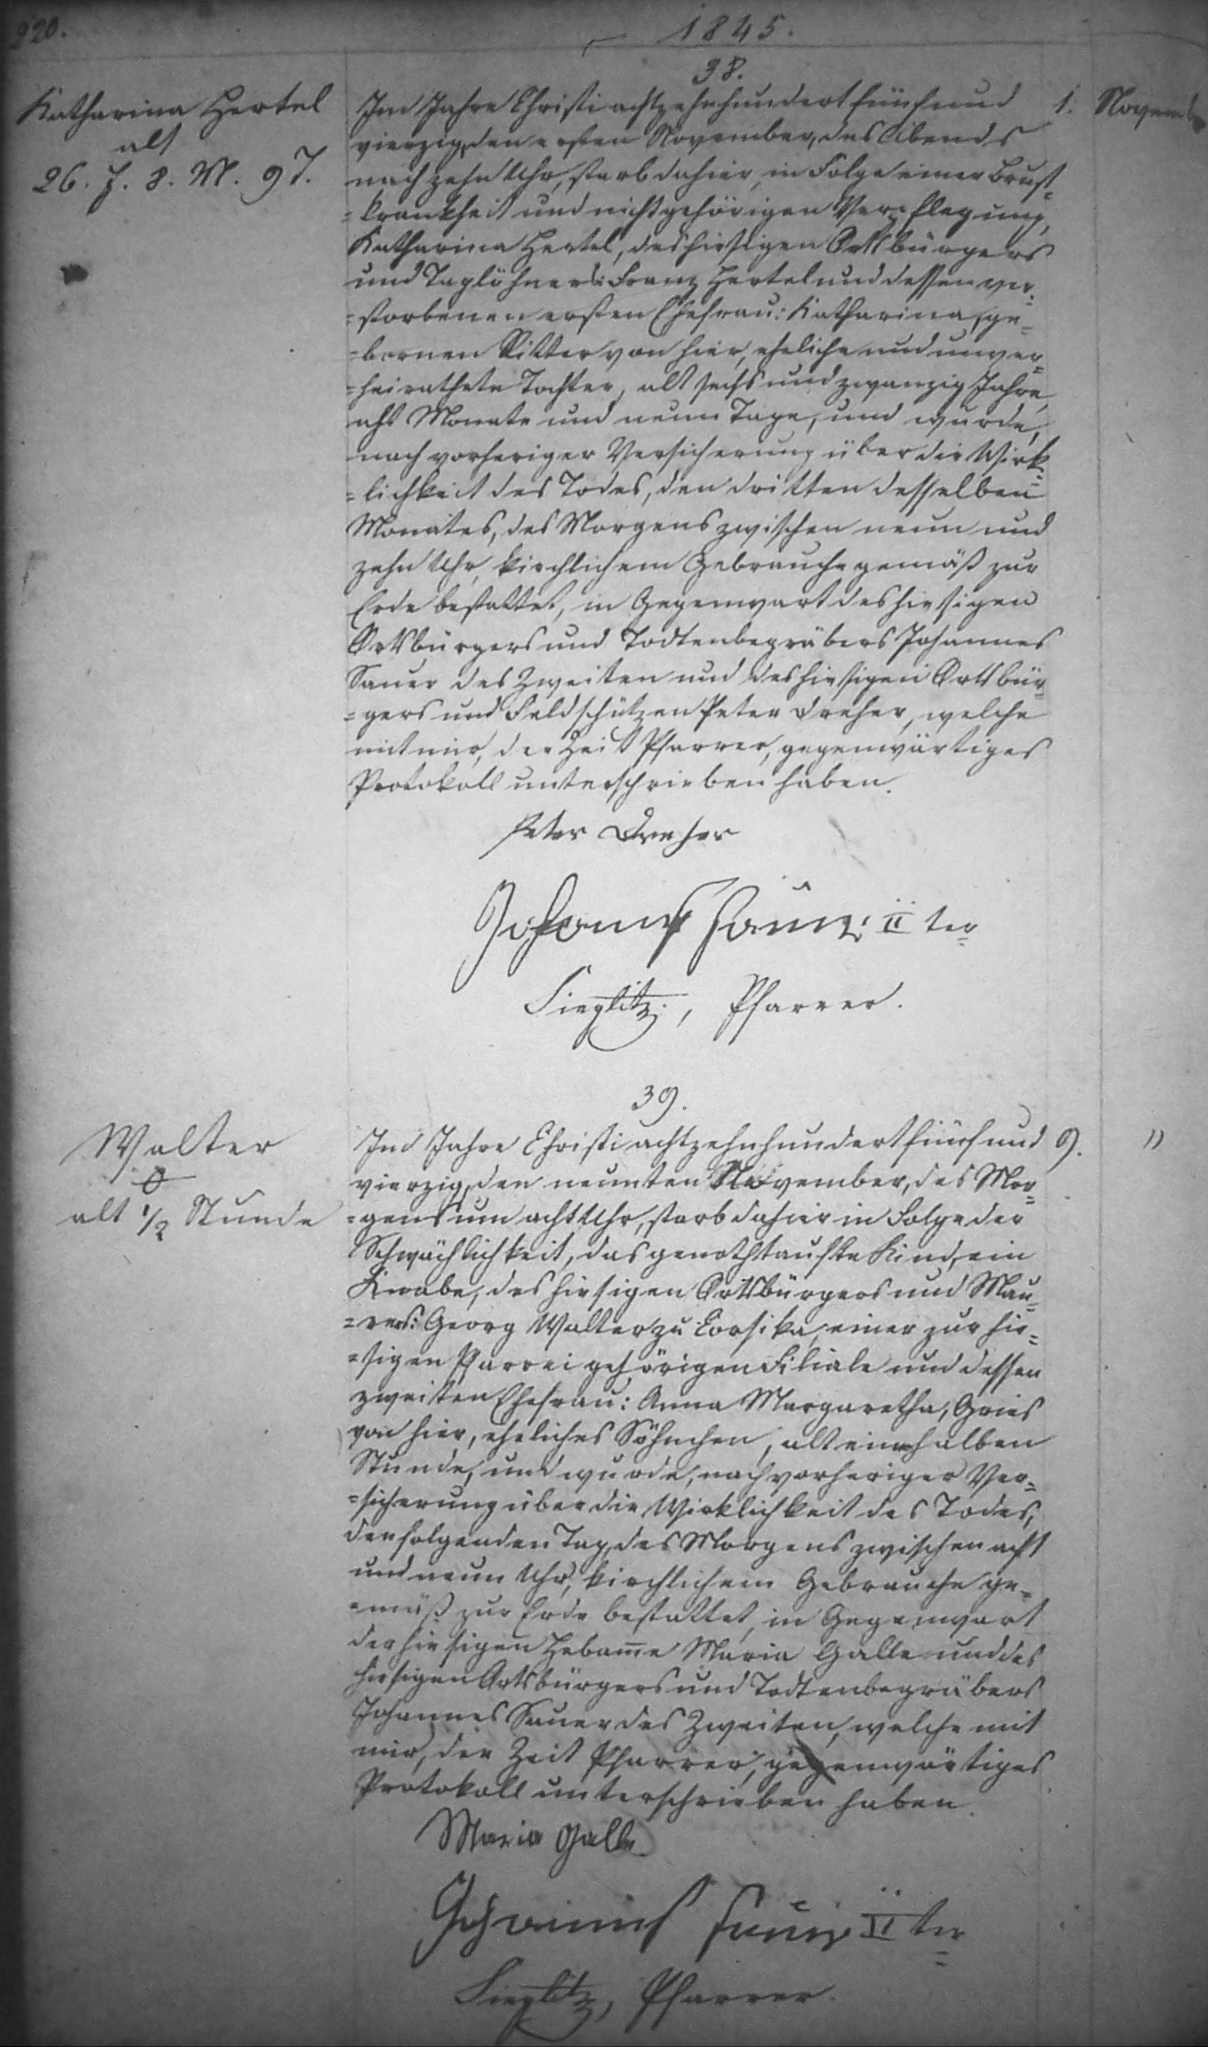 220.
1845.
38.
Katharina Hertel
alt
26. J. 8. M. 9 T.
Im Jahre Christi achtzehnhundert fünf und
vierzig, den ersten November, des Abends
nach zehn Uhr, starb dahier, in Folge einer Brust-
=krankheit und nicht gehörigen Verpflegung,
Katharina Hertel, des hiesigen Ortsbürgers
und Taglöhners: Franz Hertel und dessen ver-
=storbenen ersten Ehefrau: Katharina, ge-
=bornen Ritter von hier, eheliche und unver-
=heirathete Tochter, alt sechs und zwanzig Jahre,
acht Monate und neun Tage, und wurde,
nach vorheriger Versicherung über die Wirk-
=lichkeit des Todes, den dritten desselben
Monates, des Morgens zwischen neun und
zehn Uhr, kirchlichem Gebrauche gemäß zur
Erde bestattet, in Gegenwart des hiesigen
Ortsbürgers und Todtenbegräbers Johannes
Sauer des Zweiten und des hiesigen Ortsbür-
=gers und Feldschützen Peter Dreher, welche
mit mir, der Zeit Pfarrer, gegenwärtiges
Protokoll unterschrieben haben.
1. Novemb
Peter Dreher
Johannes Sauer II ter
Sieglitz, Pfarrer.
39.
Walter
alt 1/2 Stunde
Im Jahre Christi achtzehnhundert fünf und
vierzig, den neunten November, des Mor-
=gens um acht Uhr, starb dahier in Folge der
Schwächlichkeit, das genothtaufte Kind, ein
Knabe, des hiesigen Ortsbürgers und Mau-
=rers: Georg Walter zu Corsika, einer zur hie-
=sigen Pfarrei gehörigen Filiale und dessen
zweiten Ehefrau: Anna Margaretha, Gries
von hier, eheliches Söhnchen, alt einhalben
Stunde, und wurde, nach vorheriger Ver-
=sicherung über die Wirklichkeit des Todes,
den folgenden Tag, des Morgens zwischen acht
und neun Uhr, kirchlichem Gebrauche ge-
=mäß zur Erde bestattet, in Gegenwart
der hiesigen Hebame Maria Galle und des
hiesigen Ortsbürgers und Todtenbegräbers
Johannes Sauer des Zweiten, welche mit
mir, der Zeit Pfarrer, gegenwärtiges
Protokoll unterschrieben haben.
9. "
Maria Galle
Johannes Sauer II ter
Sieglitz, Pfarrer.